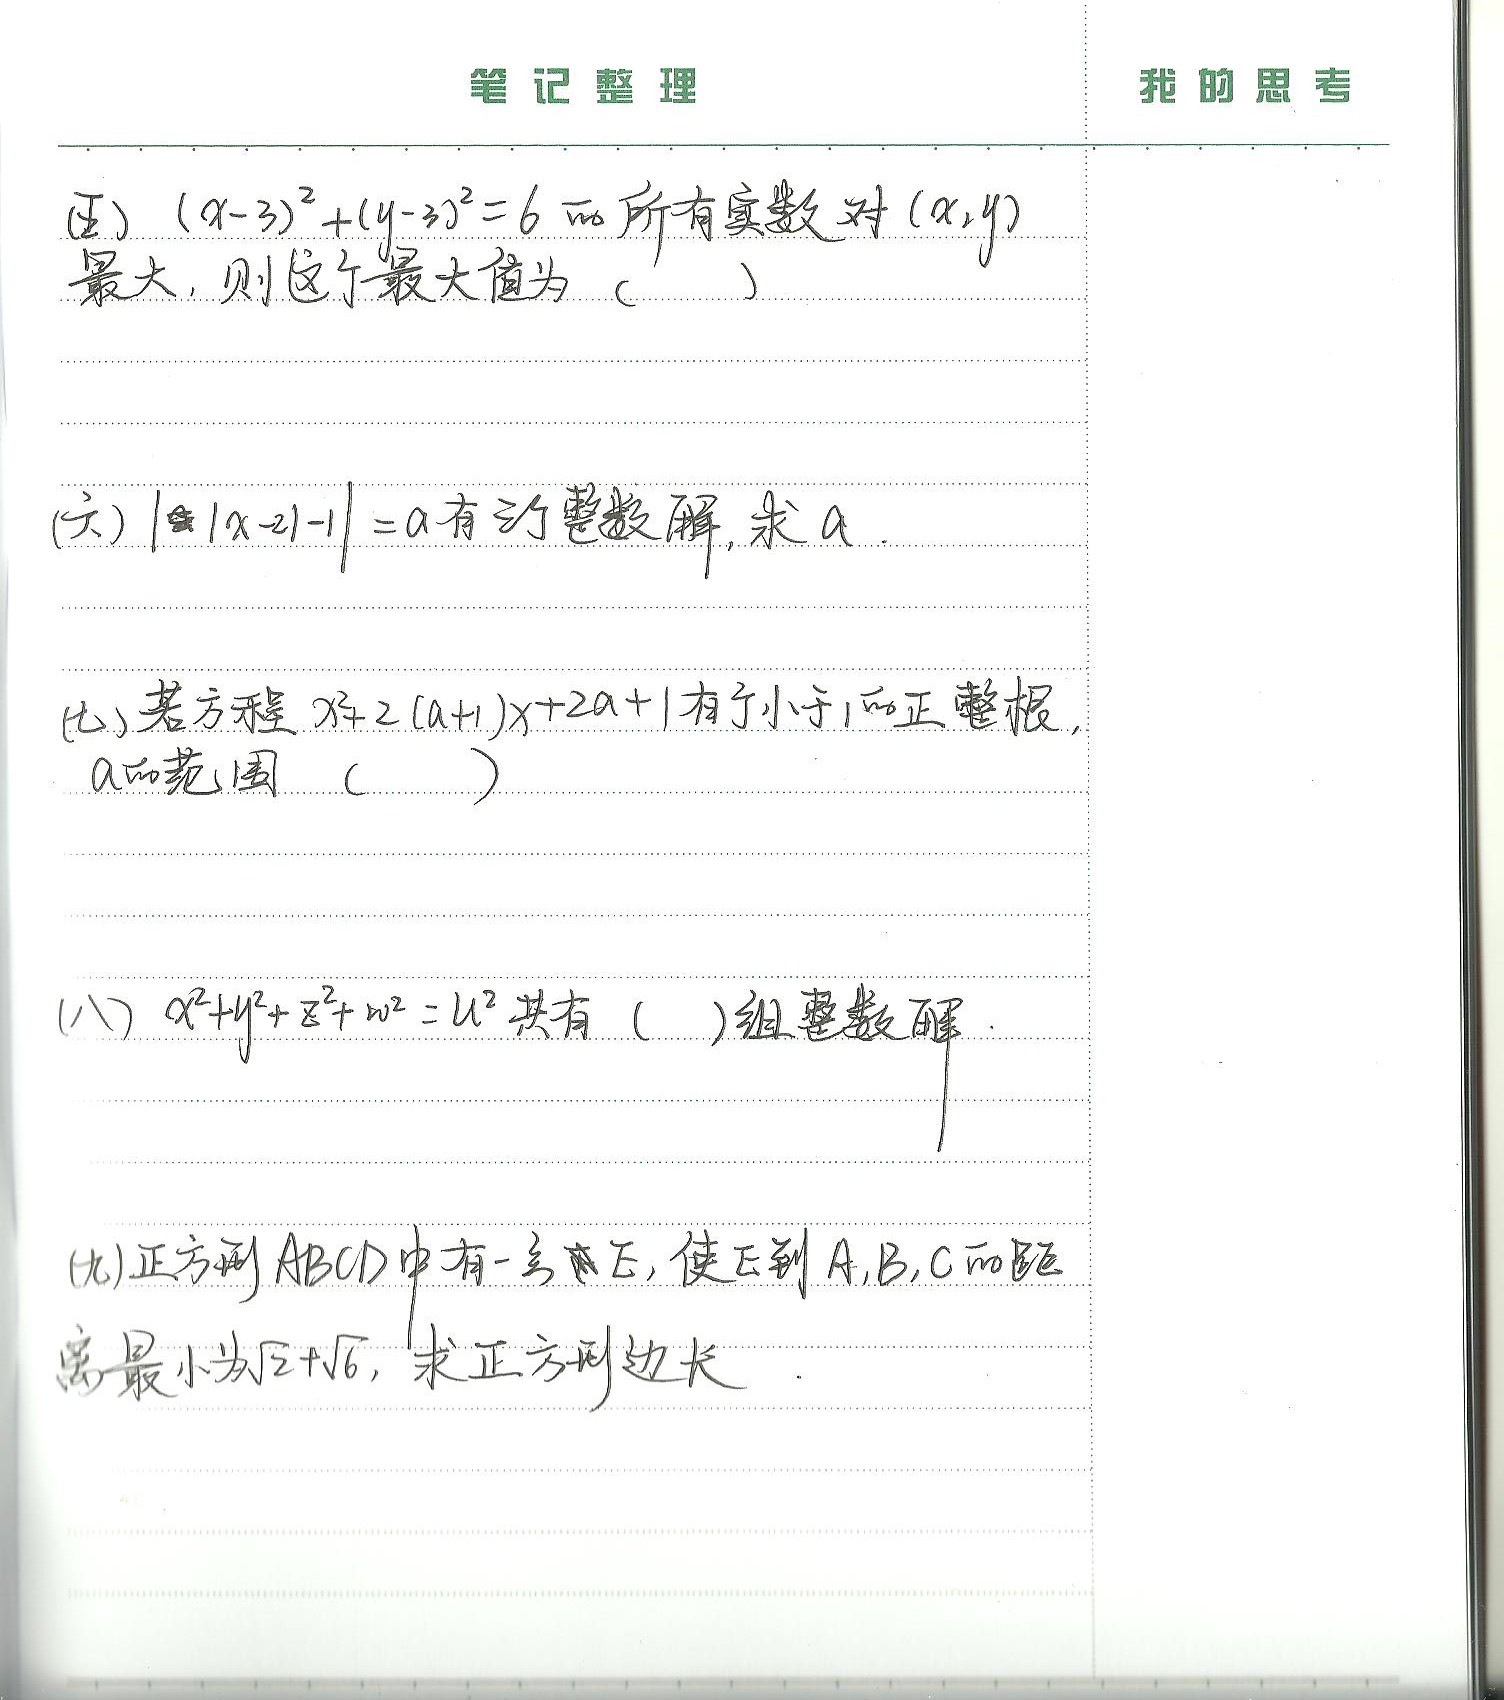 笔记整理
我的思考
(五) (x-3)²+(y-3)²=6 的所有实数对 (x,y)
最大, 则这个最大值为 ( )
(六) ||x-2|-1|=a有三个整数解, 求a.
(七) 若方程 x²+2(a+1)x+2a+1有个小于1的正整根,
a的范围 ( )
(八) x²+y²+z²+w²=u² 共有 ( ) 组整数解.
(九) 正方形ABCD中有一点E, 使E到A,B,C的距
离最小为√2+√6, 求正方形边长.